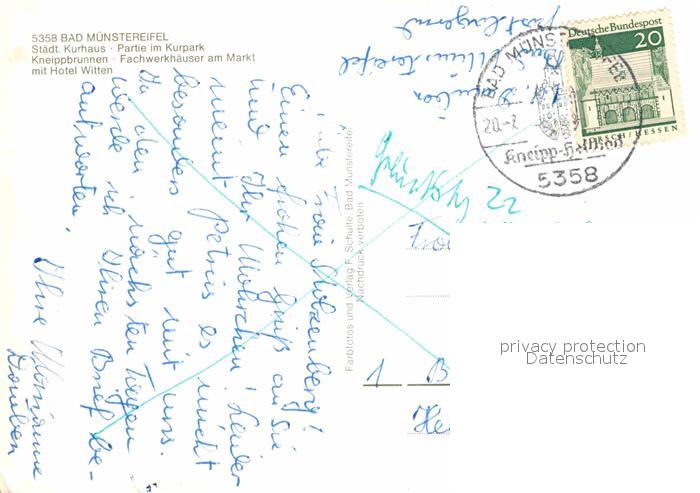 5358 BAD MÜNSTEREIFEL
Städt. Kurhaus · Partie im Kurpark
Kneippbrunnen · Fachwerkhäuser am Markt
mit Hotel Witten
Liebe Frau
Einen frohen Gruß an Sie
und Ihr Leider
meint Petrus es nicht
besonders gut mit uns.
In den nächsten Tagen
werde ich Ihren Brief be-
antworten.
Ihre Marianne
Farbfotos und Verlag F. Schulte, Bad Münstereifel
Nachdruck verboten
postlagernd
Bad Münstereifel
Deutsche Bundespost
20
LORSCH/HESSEN
BAD MÜNSTEREIFEL
20.-7
Kneipp-Heilbad
5358
22
1 B
He
privacy protection
Datenschutz